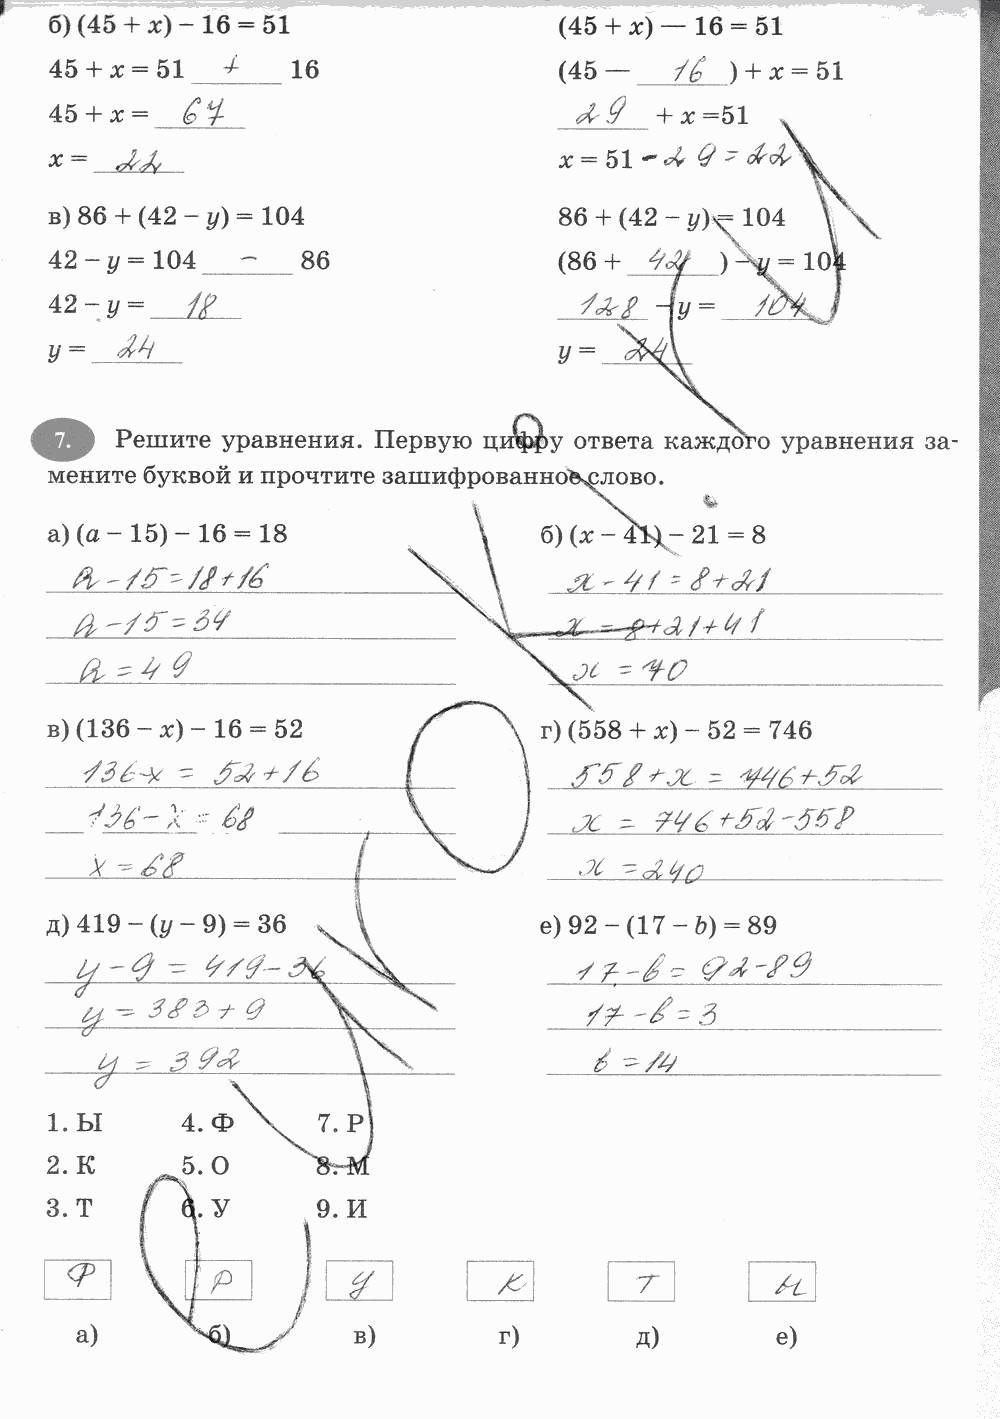 б) (45 + x) − 16 = 51
45 + x = 51 + 16
45 + x = 67
x = 22
(45 + x) — 16 = 51
(45 — 16) + x = 51
29 + x =51
x = 51 - 29 = 22
в) 86 + (42 − y) = 104
42 − y = 104 − 86
42 − y = 18
y = 24
86 + (42 − y) = 104
(86 + 42) − y = 104
128 − y = 104
y = 24
7. Решите уравнения. Первую цифру ответа каждого уравнения за-
мените буквой и прочтите зашифрованное слово.
а) (a − 15) − 16 = 18
a − 15 = 18 + 16
a − 15 = 34
a = 49
б) (x − 41) − 21 = 8
x - 41 = 8 + 21
x = 8 + 21 + 41
x = 70
в) (136 − x) − 16 = 52
136 - x = 52 + 16
136 - x = 68
x = 68
г) (558 + x) − 52 = 746
558 + x = 746 + 52
x = 746 + 52 - 558
x = 240
д) 419 − (y − 9) = 36
y - 9 = 419 - 36
y = 383 + 9
y = 392
е) 92 − (17 − b) = 89
17 - b = 92 - 89
17 - b = 3
b = 14
1. Ы 4. Ф 7. Р
2. К 5. О 8. М
3. Т 6. У 9. И
Ф Р У К Т Ы
а) б) в) г) д) е)